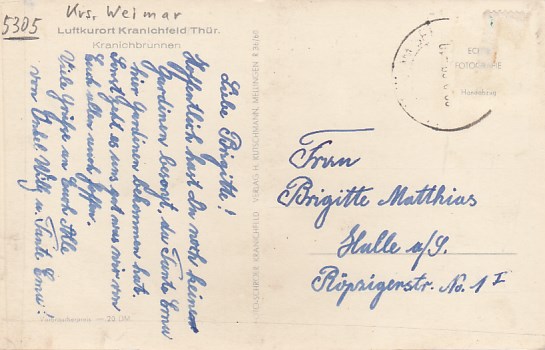 5305
Krs. Weimar
Luftkurort Kranichfeld Thür.
Kranichbrunnen
Liebe Brigitte!
Hoffentlich hast Du noch keinen
Gardinen besorgt, da Tante Erna
hier Gardinen bekommen hat.
Sonst geht es uns gut was wir von
Euch allen auch hoffen.
Viele Grüße an Euch Alle
von Onkel Willy u. Tante Erna!
KRANICHFELD VERLAG H. RUTSCHMANN, MELLINGEN
ECHTE
FOTOGRAFIE
Handabzug
Frau
Brigitte Matthias
Halle a/S.
Röpzigerstr. No. 1 I
20 DM